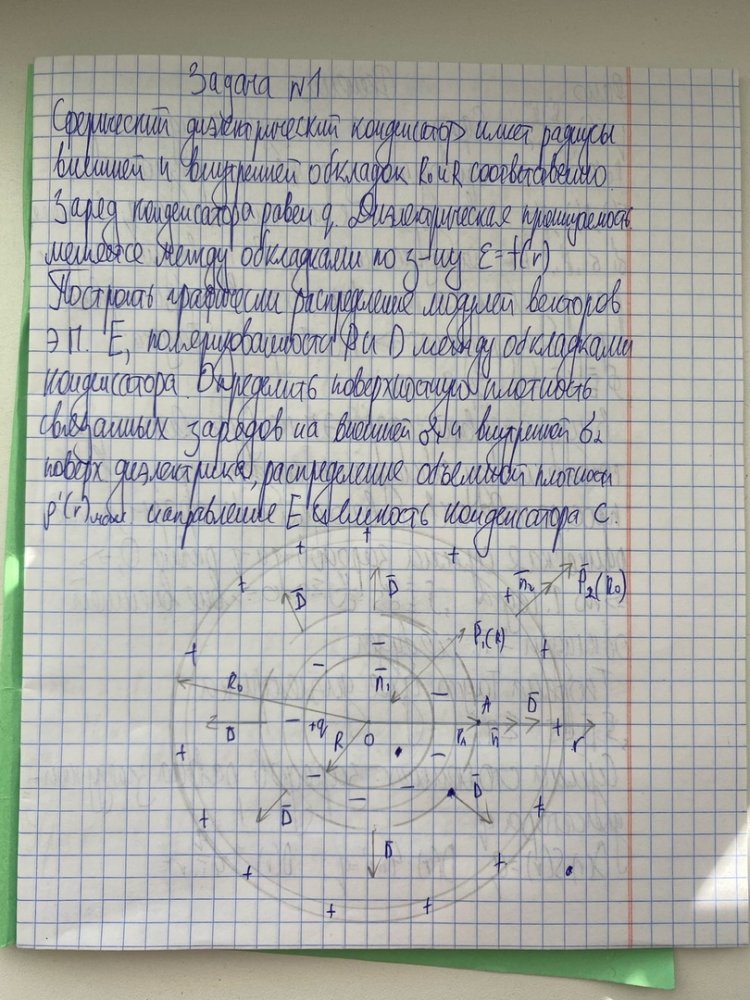 Задача №1
Сферический диэлектрический конденсатор имеет радиусы
внешней и внутренней обкладок R₀ и R соответственно.
Заряд конденсатора равен q. Диэлектрическая проницаемость
меняется между обкладками по з-ну ε=f(r)
Построить графически распределение модулей векторов
эл. E, поляризованности P и D между обкладками
конденсатора. Определить поверхностную плотность
связанных зарядов на внешней и внутренней σ₂
поверх диэлектрика, распределение объемной плотности
ρ'(r) направление E ёмкость конденсатора C.
+ + +
+ D̄ D̄ + n̄₂ P̄₂(R₀)
+ − − P̄₁(R) +
R₀ n̄₁ − A D̄
D − +q R O − r₁ n̄ + r
+ − − − D̄ +
+ D̄ D̄ +
+ + +